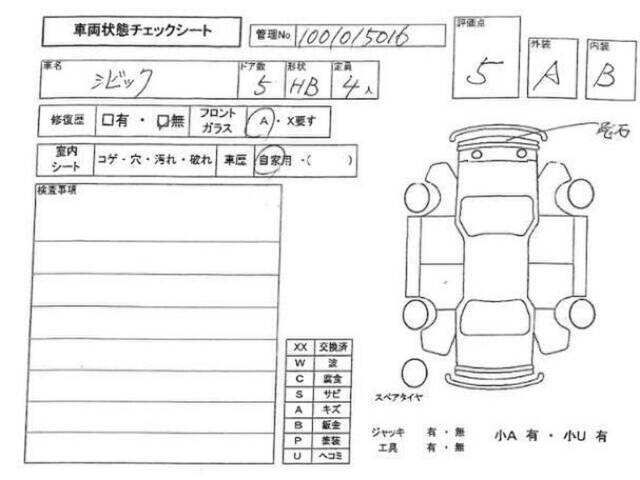 車両状態チェックシート
管理No 1001015016
評価点 5
外装 A
内装 B
車名 シビック
ドア数 5
形状 HB
定員 4人
修復歴 □有・□無
フロントガラス A・X要す
室内シート コゲ・穴・汚れ・破れ
車歴 自家用・( )
飛石
検査事項
XX 交換済
W 波
C 腐食
S サビ
A キズ
B 鈑金
P 塗装
U ヘコミ
スペアタイヤ
ジャッキ 有・無
工具 有・無
小A 有・小U 有